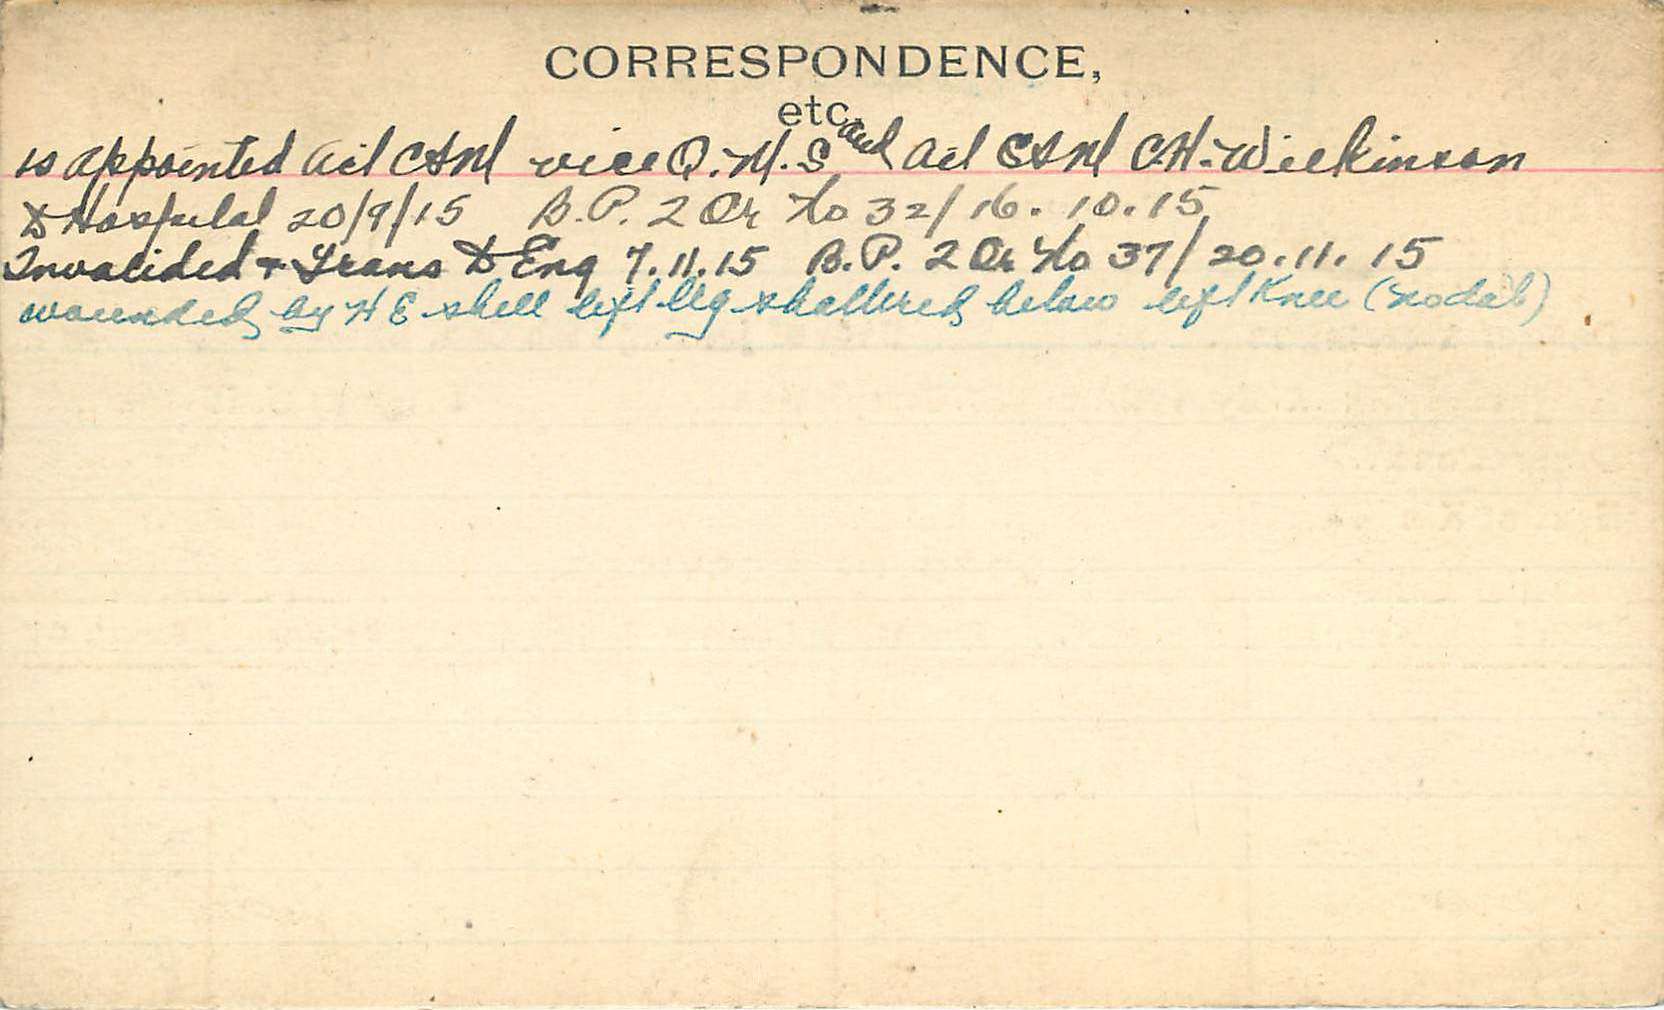 CORRESPONDENCE,
etc.
is appointed act CSM vice Q.M.S and act CSM C.H. Wilkinson
to Hospital 20/9/15 B.P. 2 Or No 32/16.10.15
Invalided + Trans to Eng 7.11.15 B.P. 2 Or No 37/20.11.15
wounded by H E shell left leg shattered below left Knee (nodal)